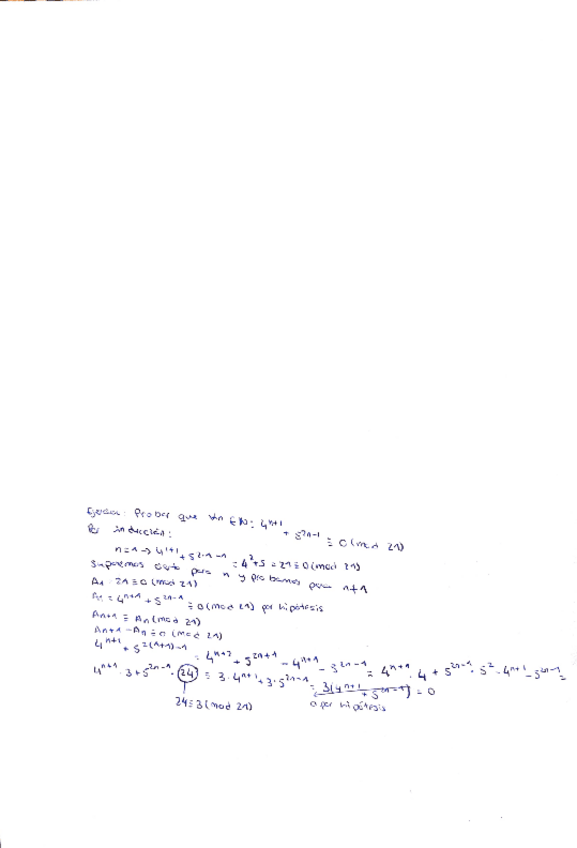 Ejercicio: Probar que ∀n ∈ ℕ: 4^(n+1) + 5^(2n-1) ≡ 0 (mod 21)
Por inducción:
n=1 → 4^(1+1) + 5^(2·1-1) = 4^2+5 = 21 ≡ 0 (mod 21)
Suponemos cierto para n y probamos para n+1
A1: 21 ≡ 0 (mod 21)
An = 4^(n+1) + 5^(2n-1) ≡ 0 (mod 21) por hipótesis
An+1 ≡ An (mod 21)
An+1 - An ≡ 0 (mod 21)
4^(n+1) + 5^(2(n+1)-1) = 4^(n+2) + 5^(2n+1) - 4^(n+1) - 5^(2n-1) = 4^(n+1) · 4 + 5^(2n-1) · 5^2 - 4^(n+1) - 5^(2n-1) =
4^(n+1) · 3 + 5^(2n-1) · 24 ≡ 3 · 4^(n+1) + 3 · 5^(2n-1) = 3(4^(n+1) + 5^(2n-1)) = 0
24 ≡ 3 (mod 21) 0 por hipótesis